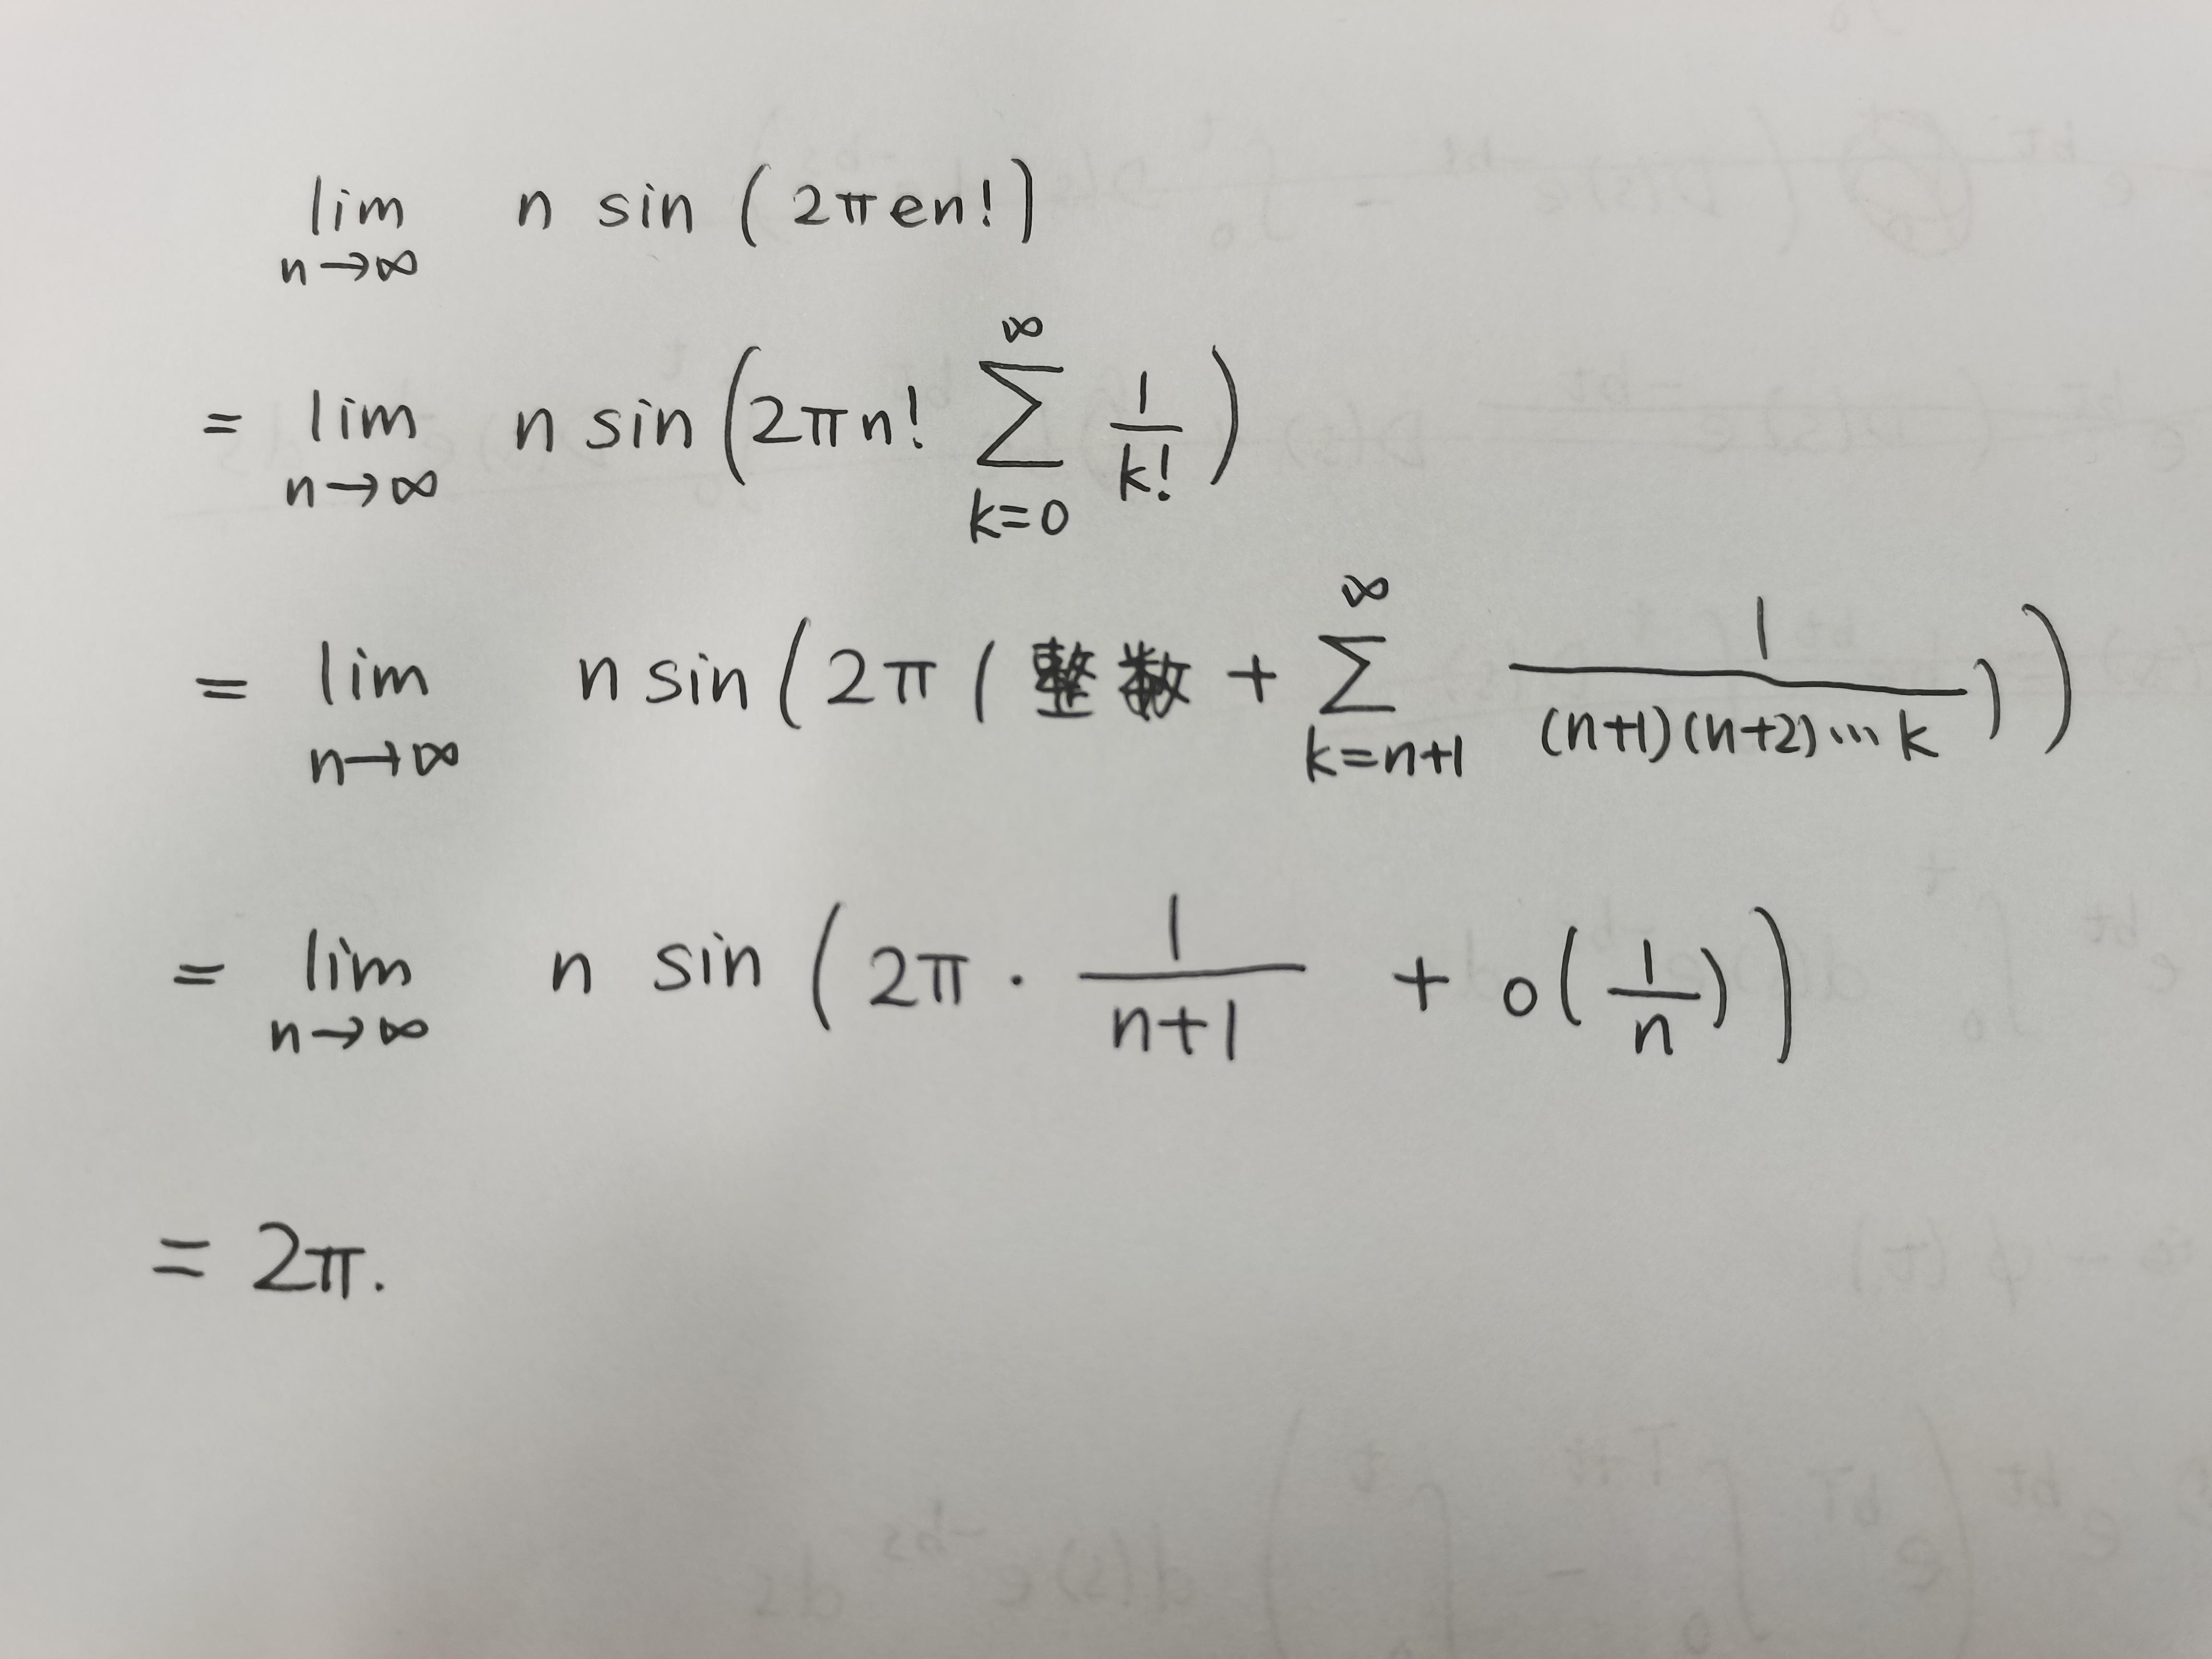 lim n→∞ n sin (2πen!)
= lim n→∞ n sin (2πn! ∑ k=0 ∞ 1/k!)
= lim n→∞ n sin (2π (整数 + ∑ k=n+1 ∞ 1/((n+1)(n+2)…k)))
= lim n→∞ n sin (2π · 1/(n+1) + o(1/n))
= 2π.